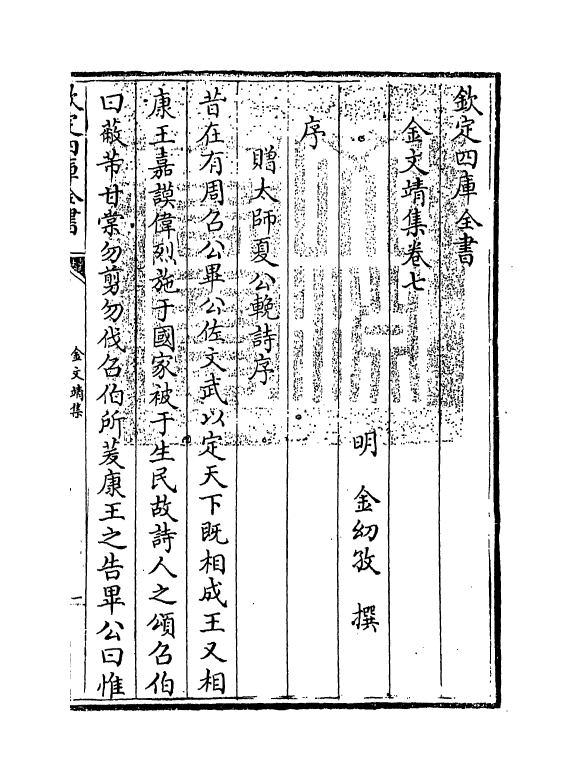 欽定四庫全書
金文靖集卷七
明 金幼孜 撰
序
贈太師夏公輓詩序
昔在有周召公畢公佐文武以定天下既相成王又相
康王嘉謨偉烈施于國家被于生民故詩人之頌召伯
曰蔽芾甘棠勿剪勿伐召伯所茇康王之告畢公曰惟
欽定四庫全書
金文靖集
一